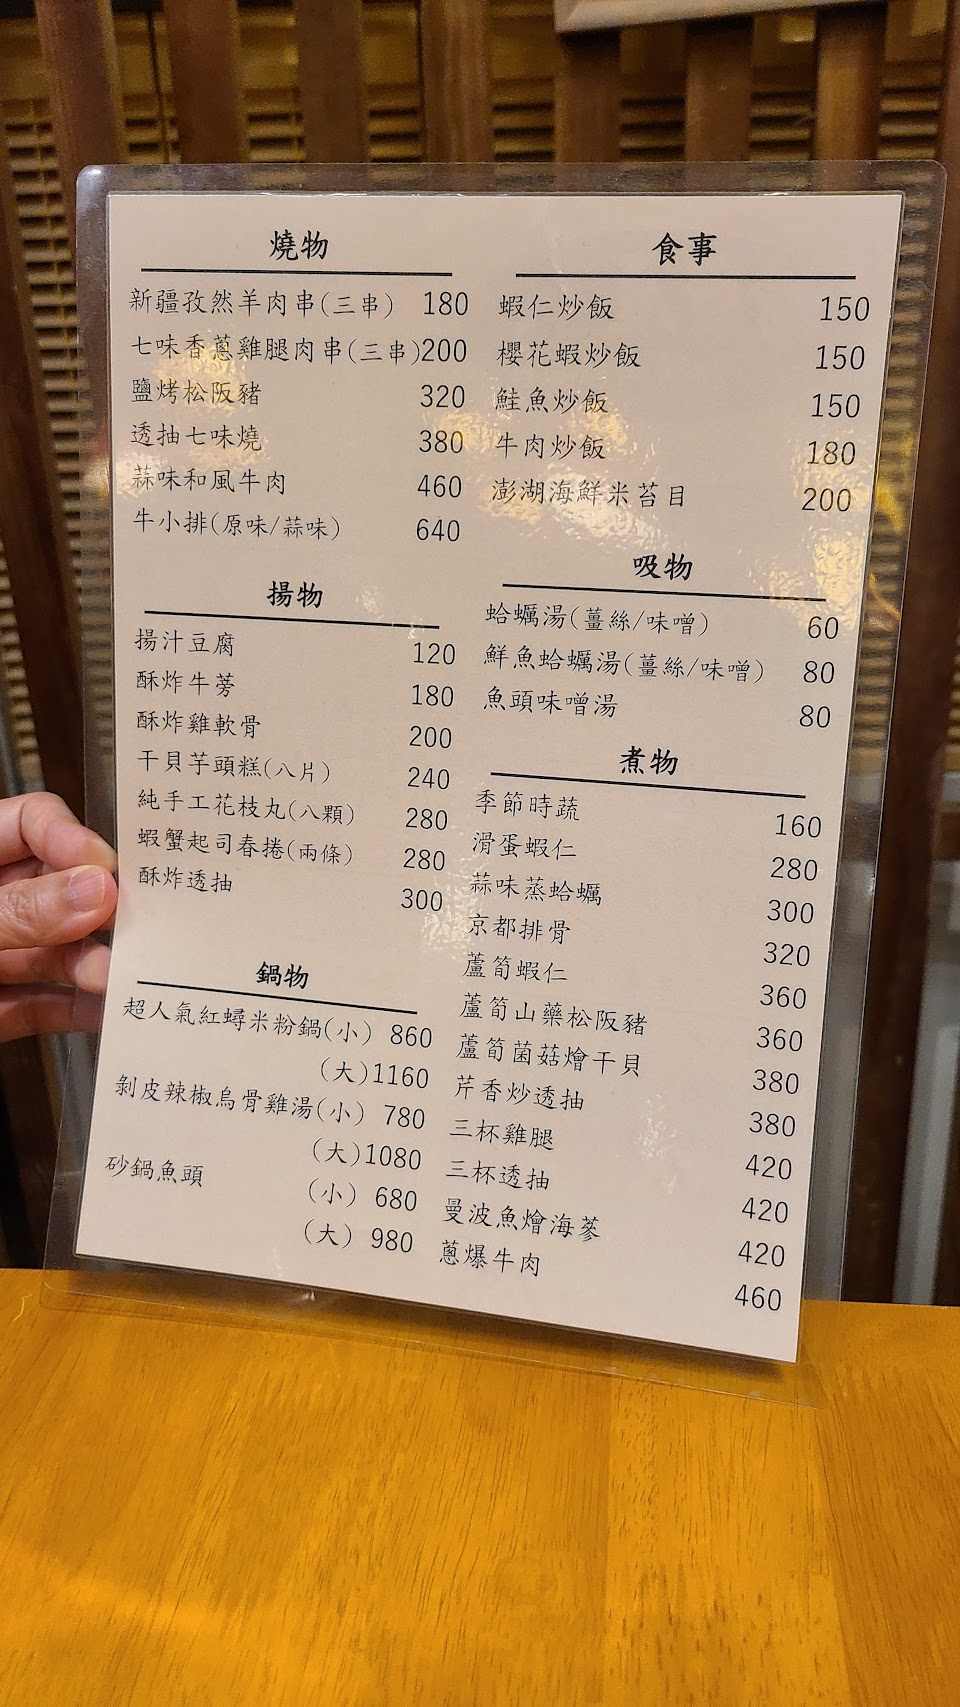 燒物
新疆孜然羊肉串(三串) 180
七味香蔥雞腿肉串(三串)200
鹽烤松阪豬 320
透抽七味燒 380
蒜味和風牛肉 460
牛小排(原味/蒜味) 640
揚物
揚汁豆腐 120
酥炸牛蒡 180
酥炸雞軟骨 200
干貝芋頭糕(八片) 240
純手工花枝丸(八顆) 280
蝦蟹起司春捲(兩條) 280
酥炸透抽 300
鍋物
超人氣紅蟳米粉鍋(小) 860
(大)1160
剝皮辣椒烏骨雞湯(小) 780
(大)1080
砂鍋魚頭 (小) 680
(大) 980
食事
蝦仁炒飯 150
櫻花蝦炒飯 150
鮭魚炒飯 150
牛肉炒飯 180
澎湖海鮮米苔目 200
吸物
蛤蠣湯(薑絲/味噌) 60
鮮魚蛤蠣湯(薑絲/味噌) 80
魚頭味噌湯 80
煮物
季節時蔬 160
滑蛋蝦仁 280
蒜味蒸蛤蠣 300
京都排骨 320
蘆筍蝦仁 360
蘆筍山藥松阪豬 360
蘆筍菌菇燴干貝 380
芹香炒透抽 380
三杯雞腿 420
三杯透抽 420
曼波魚燴海蔘 420
蔥爆牛肉 460